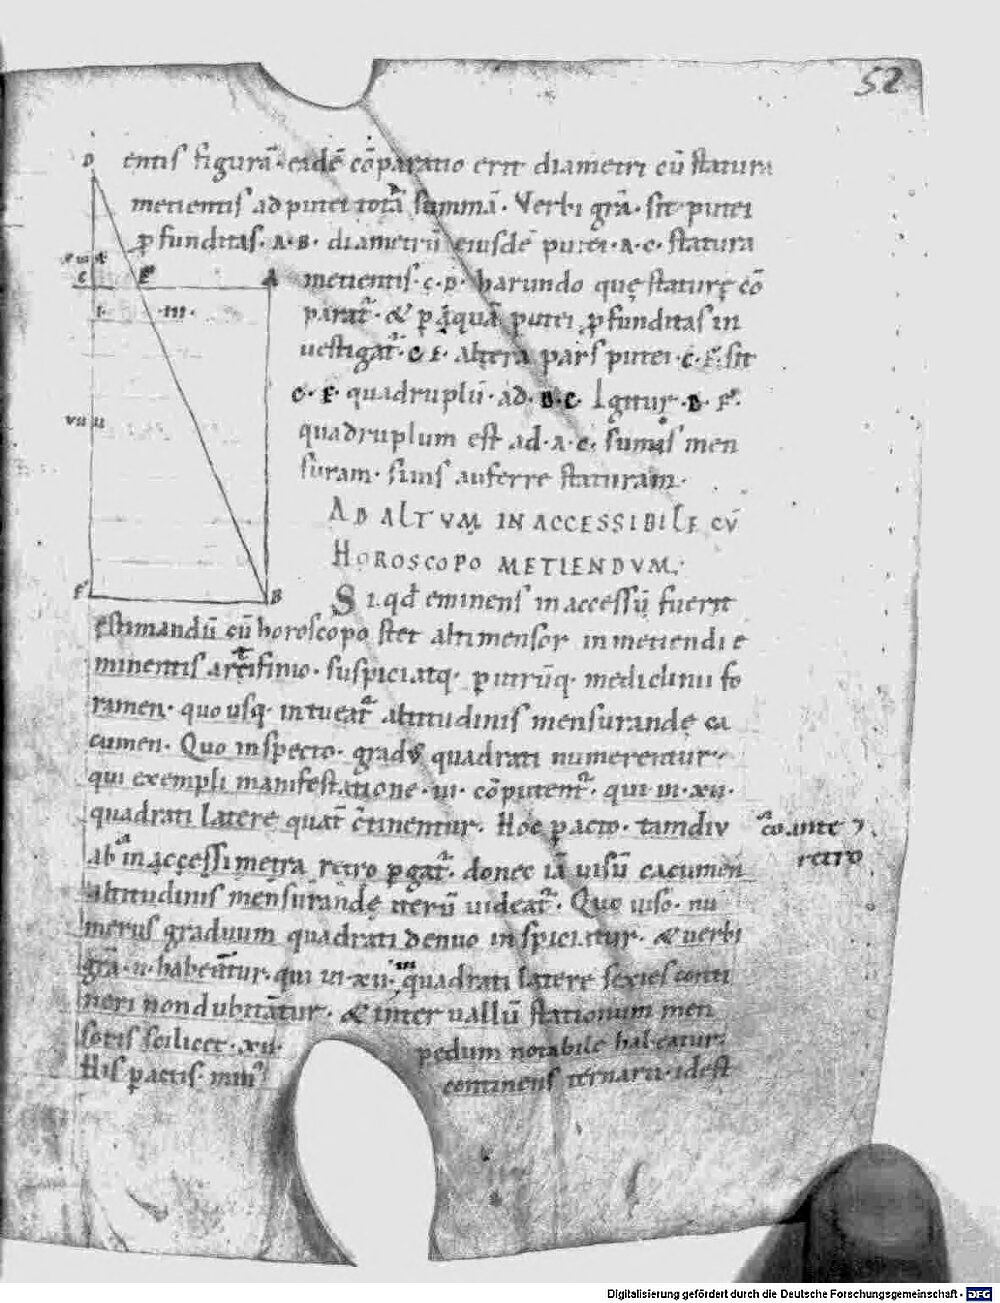 52
entis figurā · eadē cōparatio erit diametri cū statura
metientis ad putei totā summā · Verbi grā · sit putei
ꝓfunditas · A · B · diametrū eiusdē putei · A · C · statura
metientis · C · D · harundo quę staturę cō
parat᷑ · & p quā putei ꝓfunditas in
uestigat᷑ · C E · altera pars putei · C · F · sit
C · E · quadruplū · ad · D · C · Igitur · B · F ·
quadruplum est ad · A · C · sumās men
suram · suis auferre staturam ·
AD ALTVM INACCESSIBILE CV̄
HOROSCOPO METIENDVM ·
Si · qd̄ eminens inaccessū fuerit
estimandū cū horoscopo stet altimensor in metiendi e
minentis artifinio · suspiciatq · p utrūq · mediclinii fo
ramen · quo usq · intueat᷑ altitudinis mensurandę ca
cumen · Quo inspecto · gradus quadrati numerentur
qui exempli manifestatione · III · cōputent᷑ · qui in · XII ·
quadrati latere quat᷑ c̄tinentur · Hoc pacto · tamdiu
co ante ⁊
retro
ab inaccessi metra retro pgat᷑ · donec iā uisū cacumen
altitudinis mensurandę iterū uideat᷑ · Quo uiso · nu
merus graduum quadrati denuo inspiciatur · & uerbi
grā · II · habeātur · qui in · XII · quadrati latere sexies conti
neri non dubitātur · & inter uallū stationum men
soris scilicet · XII · pedum notabile habeatur ·
His pactis · continens ternarii · idest
D
C
E
A
I ·
· III ·
F
B